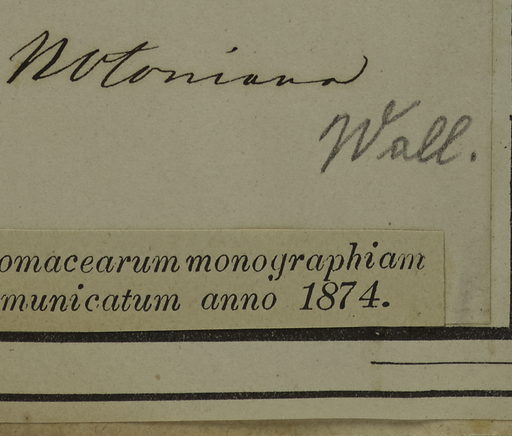 Notoniana
Wall.
omacearum monographiam
municatum anno 1874.